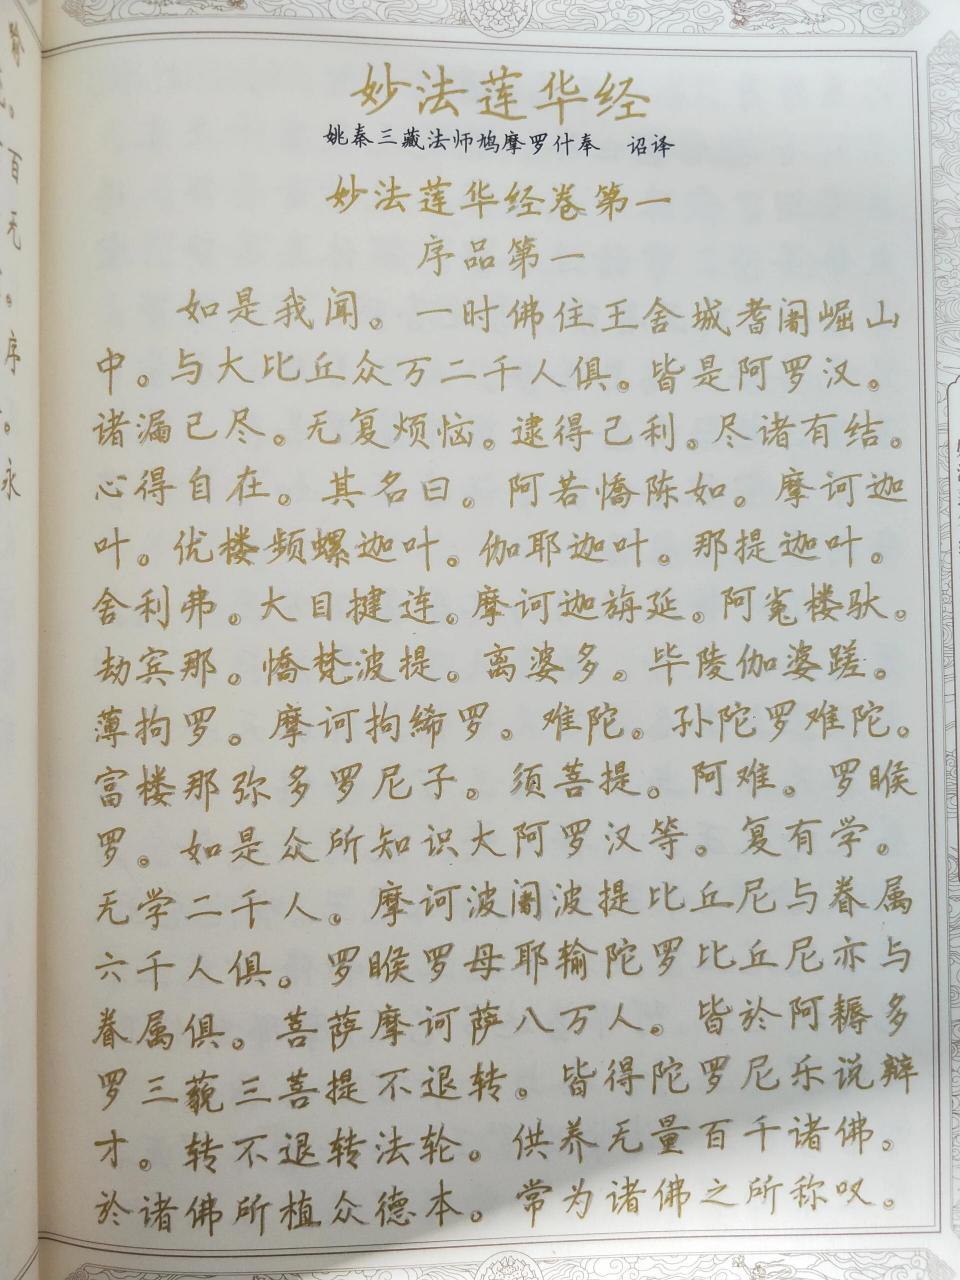 妙法莲华经
姚秦三藏法师鸠摩罗什奉　诏译
妙法莲华经卷第一
序品第一
如是我闻。一时佛住王舍城耆阇崛山
中。与大比丘众万二千人俱。皆是阿罗汉。
诸漏已尽。无复烦恼。逮得己利。尽诸有结。
心得自在。其名曰。阿若憍陈如。摩诃迦
叶。优楼频螺迦叶。伽耶迦叶。那提迦叶。
舍利弗。大目揵连。摩诃迦旃延。阿㝹楼驮。
劫宾那。憍梵波提。离婆多。毕陵伽婆蹉。
薄拘罗。摩诃拘絺罗。难陀。孙陀罗难陀。
富楼那弥多罗尼子。须菩提。阿难。罗睺
罗。如是众所知识大阿罗汉等。复有学。
无学二千人。摩诃波阇波提比丘尼与眷属
六千人俱。罗睺罗母耶输陀罗比丘尼亦与
眷属俱。菩萨摩诃萨八万人。皆於阿耨多
罗三藐三菩提不退转。皆得陀罗尼乐说辩
才。转不退转法轮。供养无量百千诸佛。
於诸佛所植众德本。常为诸佛之所称叹。
百
无
序
永